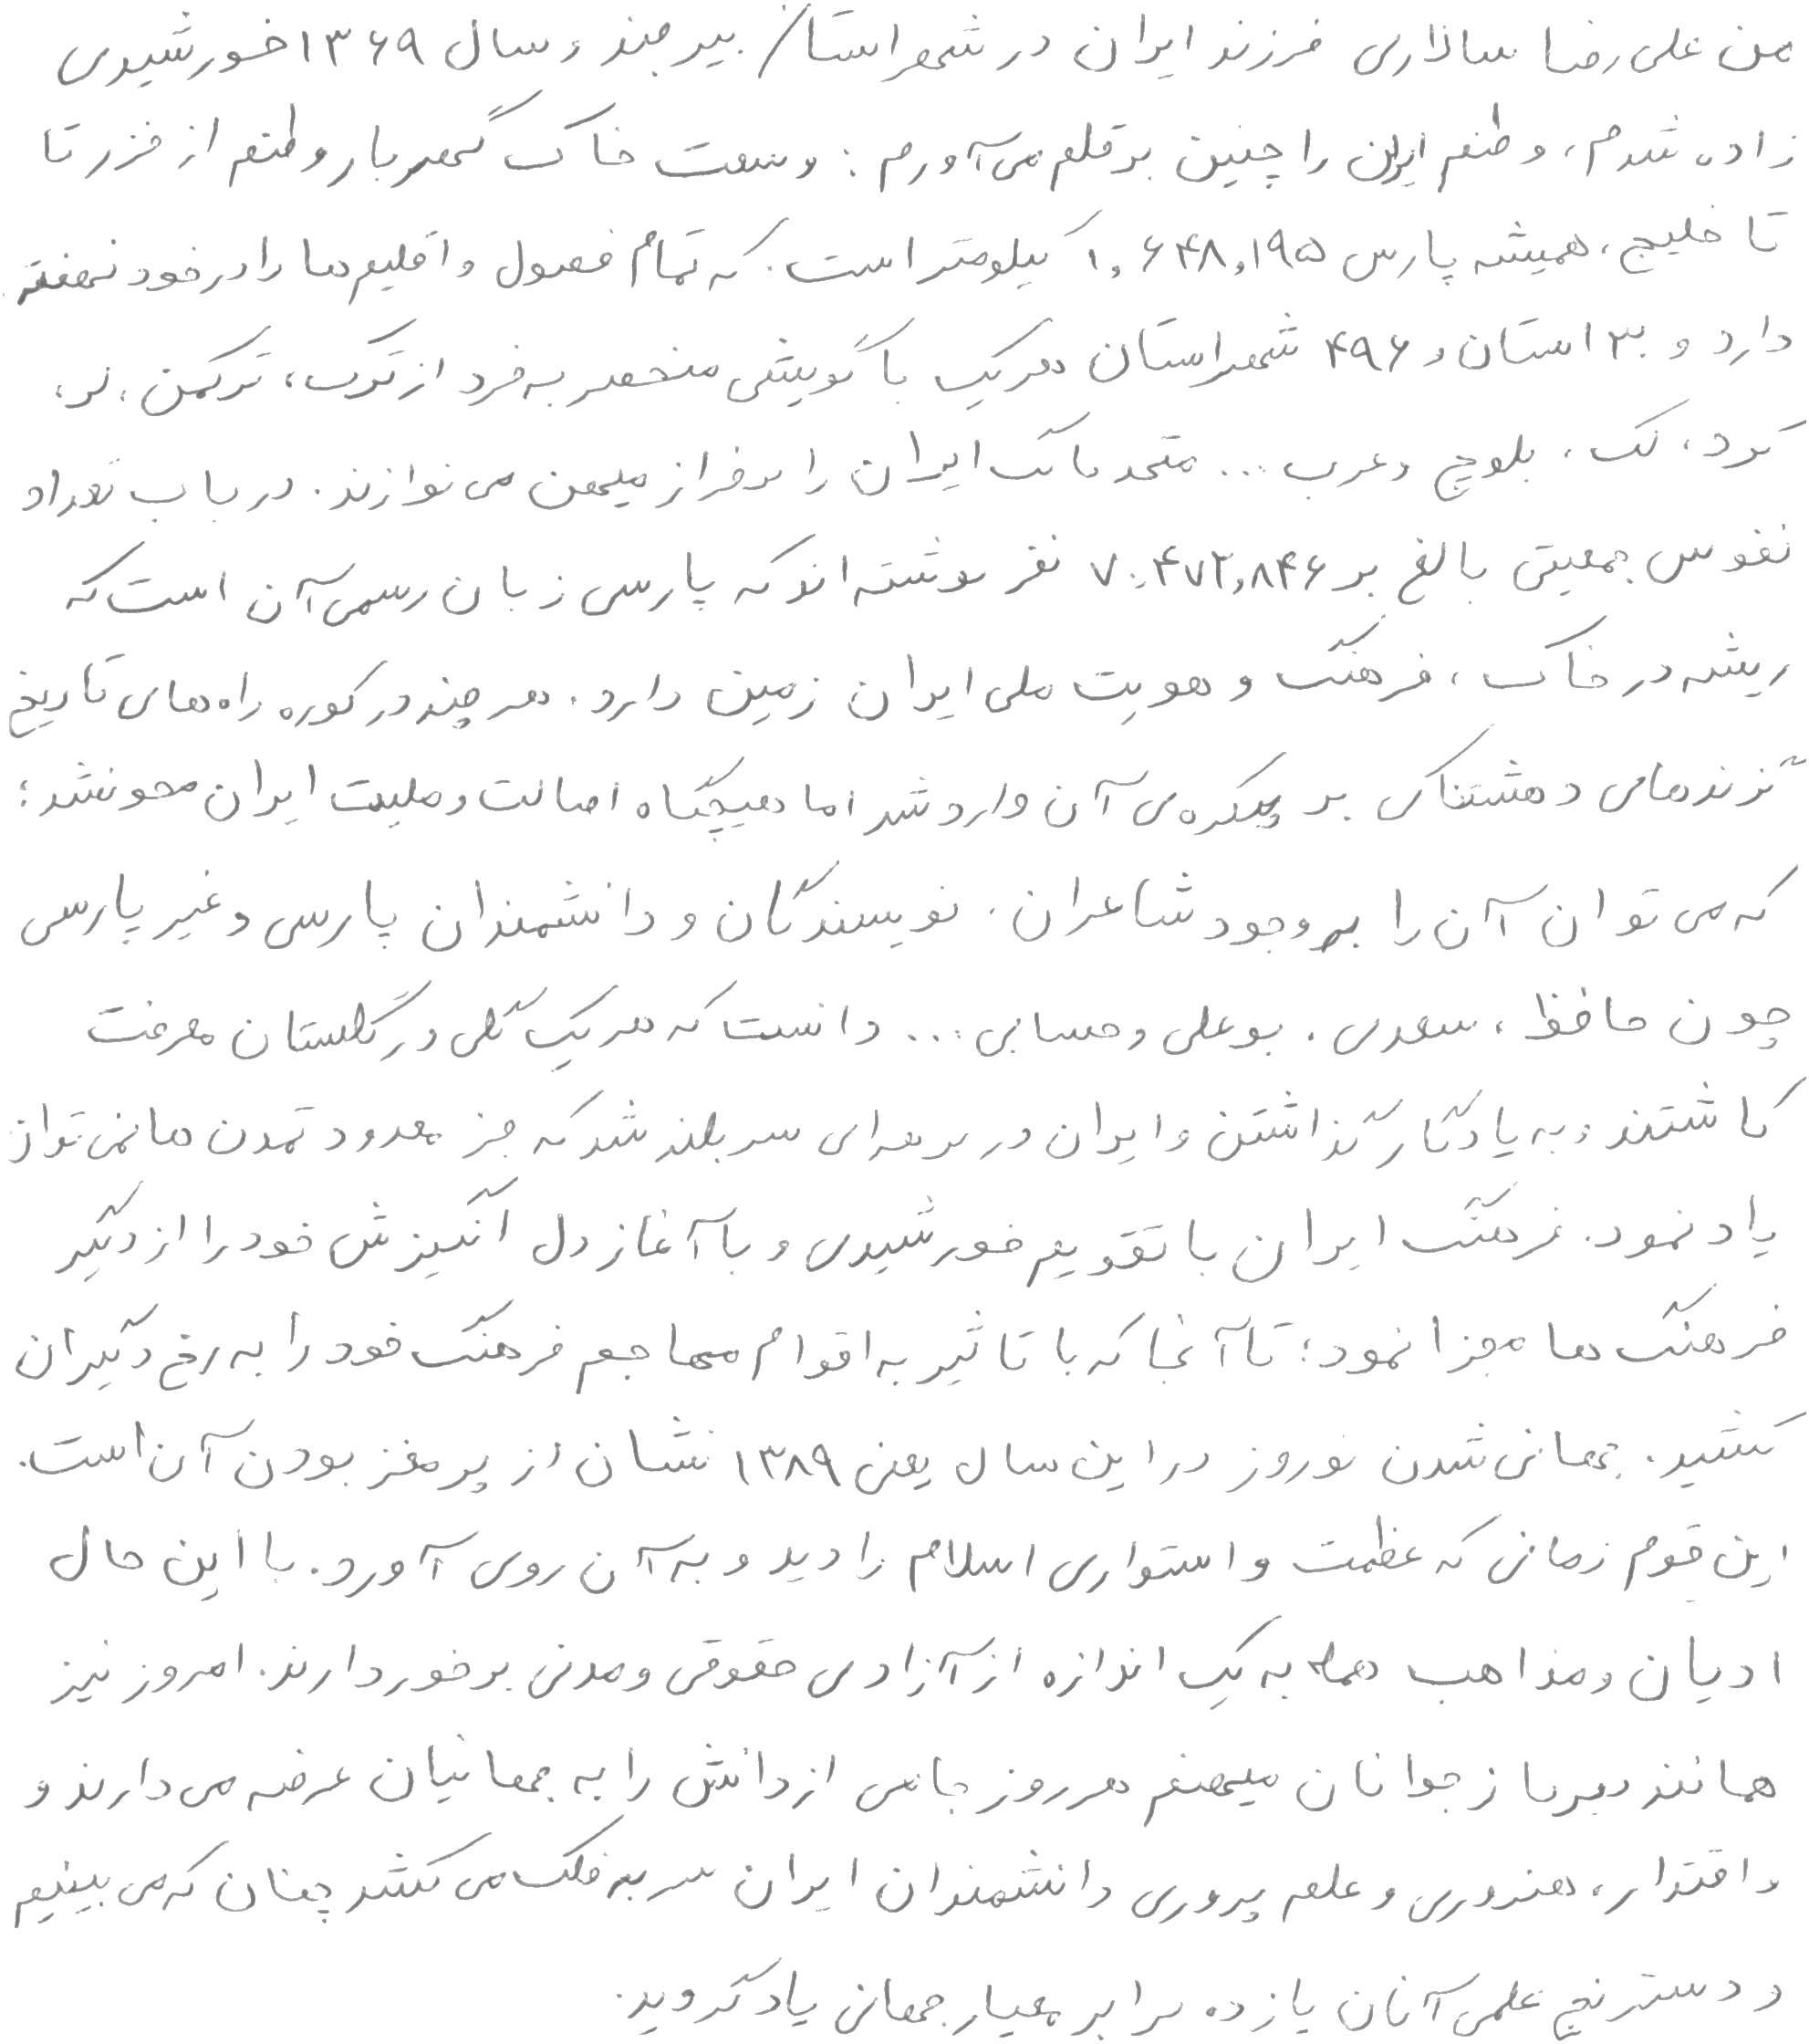 من علی رضا سالاری فرزند ایران در شهراستان بیرجند و سال ۱۳۶۹ خورشیدی
زاده شدم، وطنم ایران را چنین بر قلم می‌آورم : وسعت خاک گهربار وطنم از خزر تا
تا خلیج، همیشه پارس ۱,۶۴۸,۱۹۵ کیلومتر است. که تمام فصول و اقلیم‌ها را در خود نهفته
دارد و ۳۰ استان و ۴۹۶ شهراستان هریک با گویشی منحصر به فرد از ترک، ترکمن، لر،
کرد، لک، بلوچ و عرب ... متحد بانگ ایران را بر فراز میهن می نوازند. در باب تعداد
نفوس جمعیتی بالغ بر ۷۰,۴۷۲,۸۴۶ نفر نوشته‌اند که پارسی زبان رسمی آن است که
ریشه در خاک، فرهنگ و هویت ملی ایران زمین دارد. هر چند در کوره راه‌های تاریخ
گزندهای دهشتناکی بر پیکره‌ی آن وارد شد اما هیچگاه اصالت و ملیت ایران محو نشد؛
که می توان آن را به وجود شاعران، نویسندگان و دانشمندان پارسی و غیر پارسی
چون حافظ، سعدی، بوعلی و حسابی ... دانست که هر یک گلی در گلستان معرفت
کاشتند و به یادگار گذاشتن و ایران در برهه‌ای سر بلند شد که جز معدود تمدن ها نمی توان
یاد نمود. فرهنگ ایران با تقویم خورشیدی و با آغاز دل انگیزش خود را از دیگر
فرهنگ ها مجزا نمود؛ تا آنجا که با تاثیر به اقوام مهاجم فرهنگ خود را به رخ دیگران
کشید. جهانی شدن نوروز در این سال یعنی ۱۳۸۹ نشان از پر مغز بودن آن است.
این قوم زمانی که عظمت و استواری اسلام را دید و به آن روی آورد. با این حال
ادیان و مذاهب همه به یک اندازه از آزادی حقوقی و مدنی برخوردارند. امروز نیز
همانند دیرباز جوانان میهنم هر روز جامی از دانش را به جهانیان عرضه می دارند و
و اقتدار، هنروری و علم پروری دانشمندان ایران سر به فلک می کشد چنان که می بینیم
و دسترنج علمی آنان یازده برابر معیار جهانی یاد گردید.